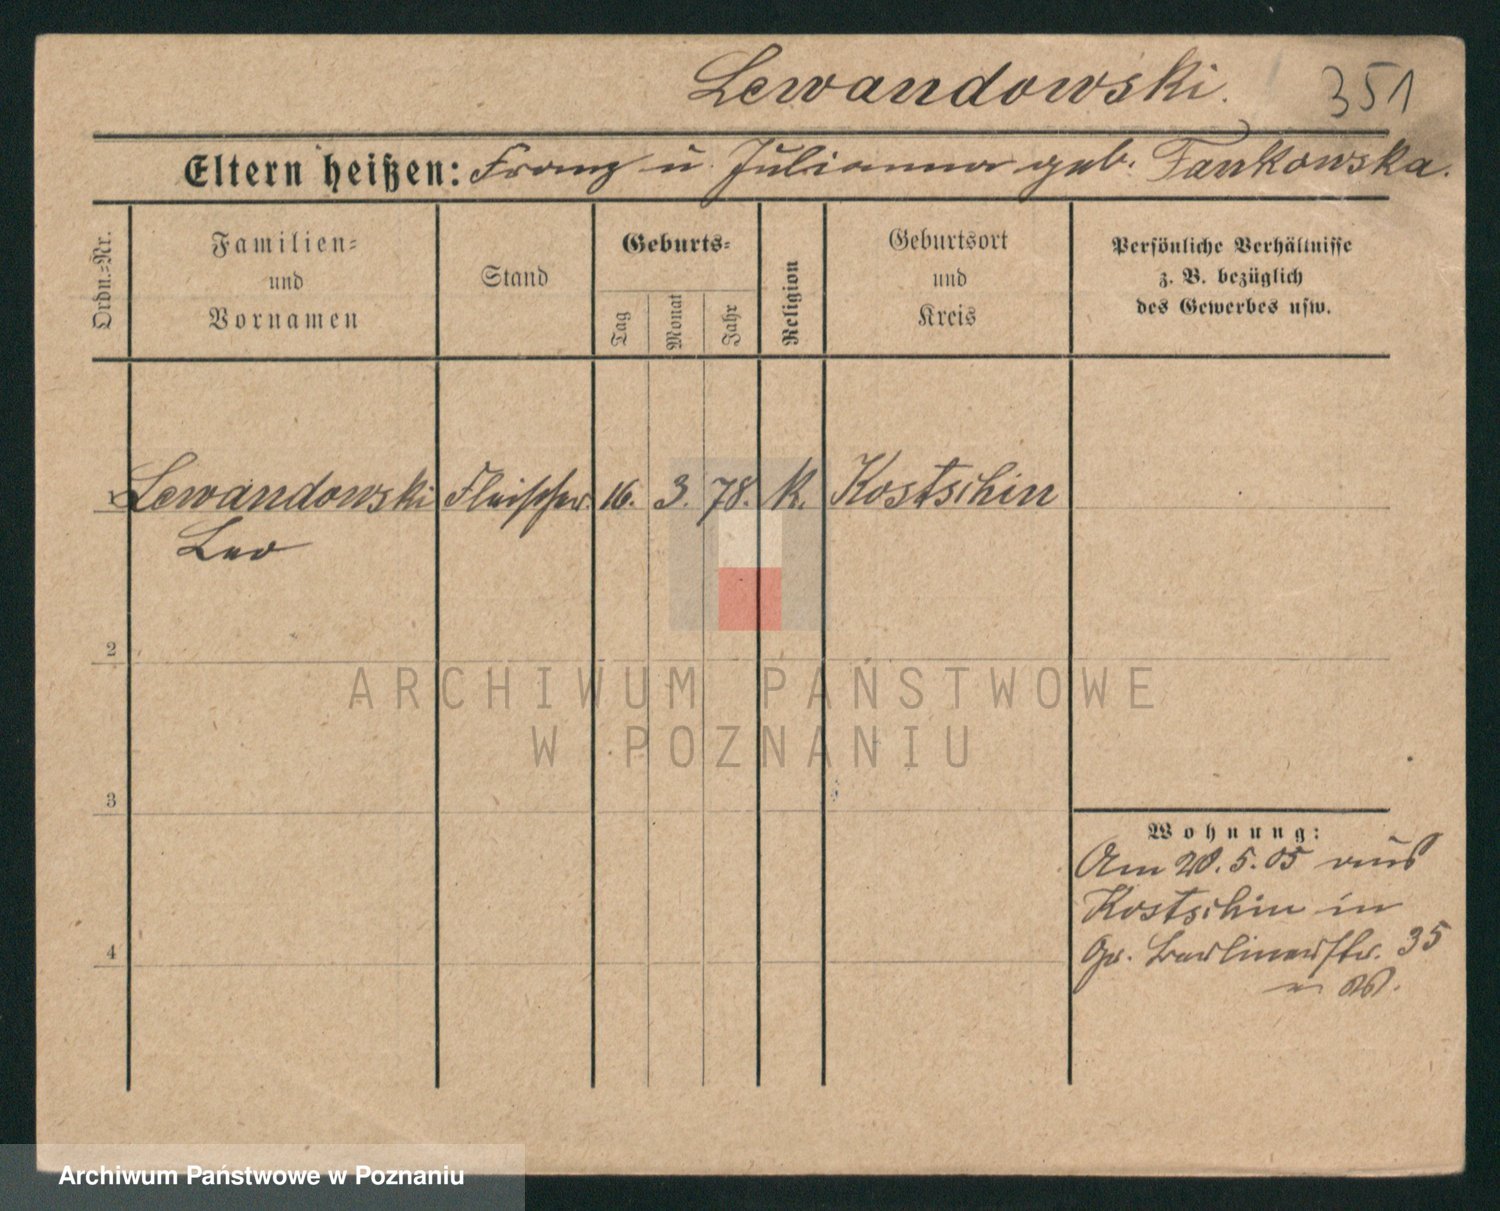 Lewandowski. 351
Eltern heißen: Franz u. Julianna geb. Jankowska.
Ordn.=Nr.
Familien=
und
Vornamen
Stand
Geburts=
Tag
Monat
Jahr
Religion
Geburtsort
und
Kreis
Persönliche Verhältnisse
z. B. bezüglich
des Gewerbes usw.
1 Lewandowski Fleischer. 16. 3. 78. K. Kostschin
Leo
2
ARCHIWUM PAŃSTWOWE
W POZNANIU
3
Wohnung:
Am 20. 5. 05 aus
Kostschin in
Gr. Berlinerstr. 35
4
Archiwum Państwowe w Poznaniu